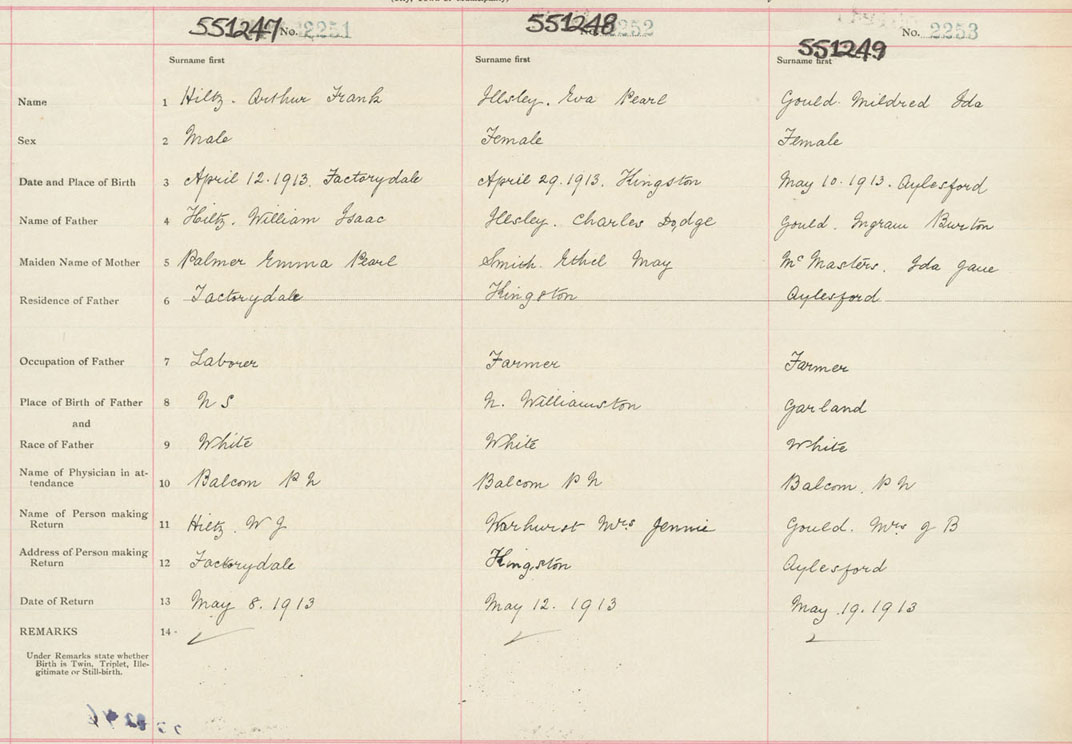 551247 No. 2251 551248 2252 551249 No. 2253
Surname first Surname first Surname first
Name 1 Hiltz. Arthur Frank Illsley. Eva Pearl Gould. Mildred Ida
Sex 2 Male Female Female
Date and Place of Birth 3 April 12. 1913. Factorydale April 29. 1913. Kingston May 10. 1913. Aylesford
Name of Father 4 Hiltz. William Isaac Illsley. Charles Dodge Gould. Ingram Burton
Maiden Name of Mother 5 Palmer Emma Pearl Smith. Ethel May McMasters. Ida Jane
Residence of Father 6 Factorydale Kingston Aylesford
Occupation of Father 7 Laborer Farmer Farmer
Place of Birth of Father 8 N S N. Williamston Garland
and
Race of Father 9 White White White
Name of Physician in at-
tendance 10 Balcom P N Balcom P N Balcom. P N
Name of Person making
Return 11 Hiltz. W J Warhurst Mrs Jennie Gould. Mrs J B
Address of Person making
Return 12 Factorydale Kingston Aylesford
Date of Return 13 May 8. 1913 May 12. 1913 May 19. 1913
REMARKS 14
Under Remarks state whether
Birth is Twin, Triplet, Ille-
gitimate or Still-birth.